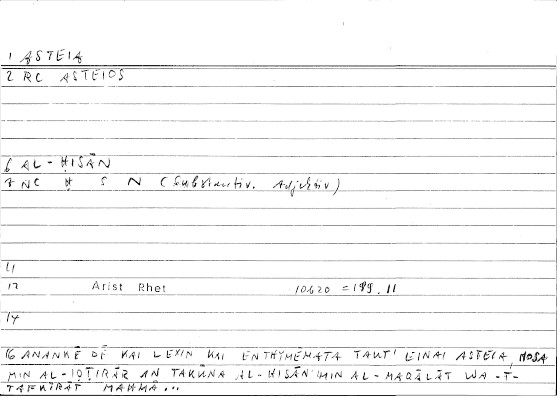 1 ASTEIA
2 RC ASTEIOS
6 AL-ḤISĀN
7 NC Ḥ S N (Substantiv. Adjektiv)
11
12 Arist Rhet 10b20 = 199.11
14
16 ANANKĒ DĒ KAI LEXIN KAI ENTHYMĒMATA TAUT' EINAI ASTEIA, HOSA
MIN AL-IḌṬIRĀR AN TAKŪNA AL-ḤISĀN MIN AL-MAQĀLĀT WA-T-
TAFKĪRĀT MAHMĀ...